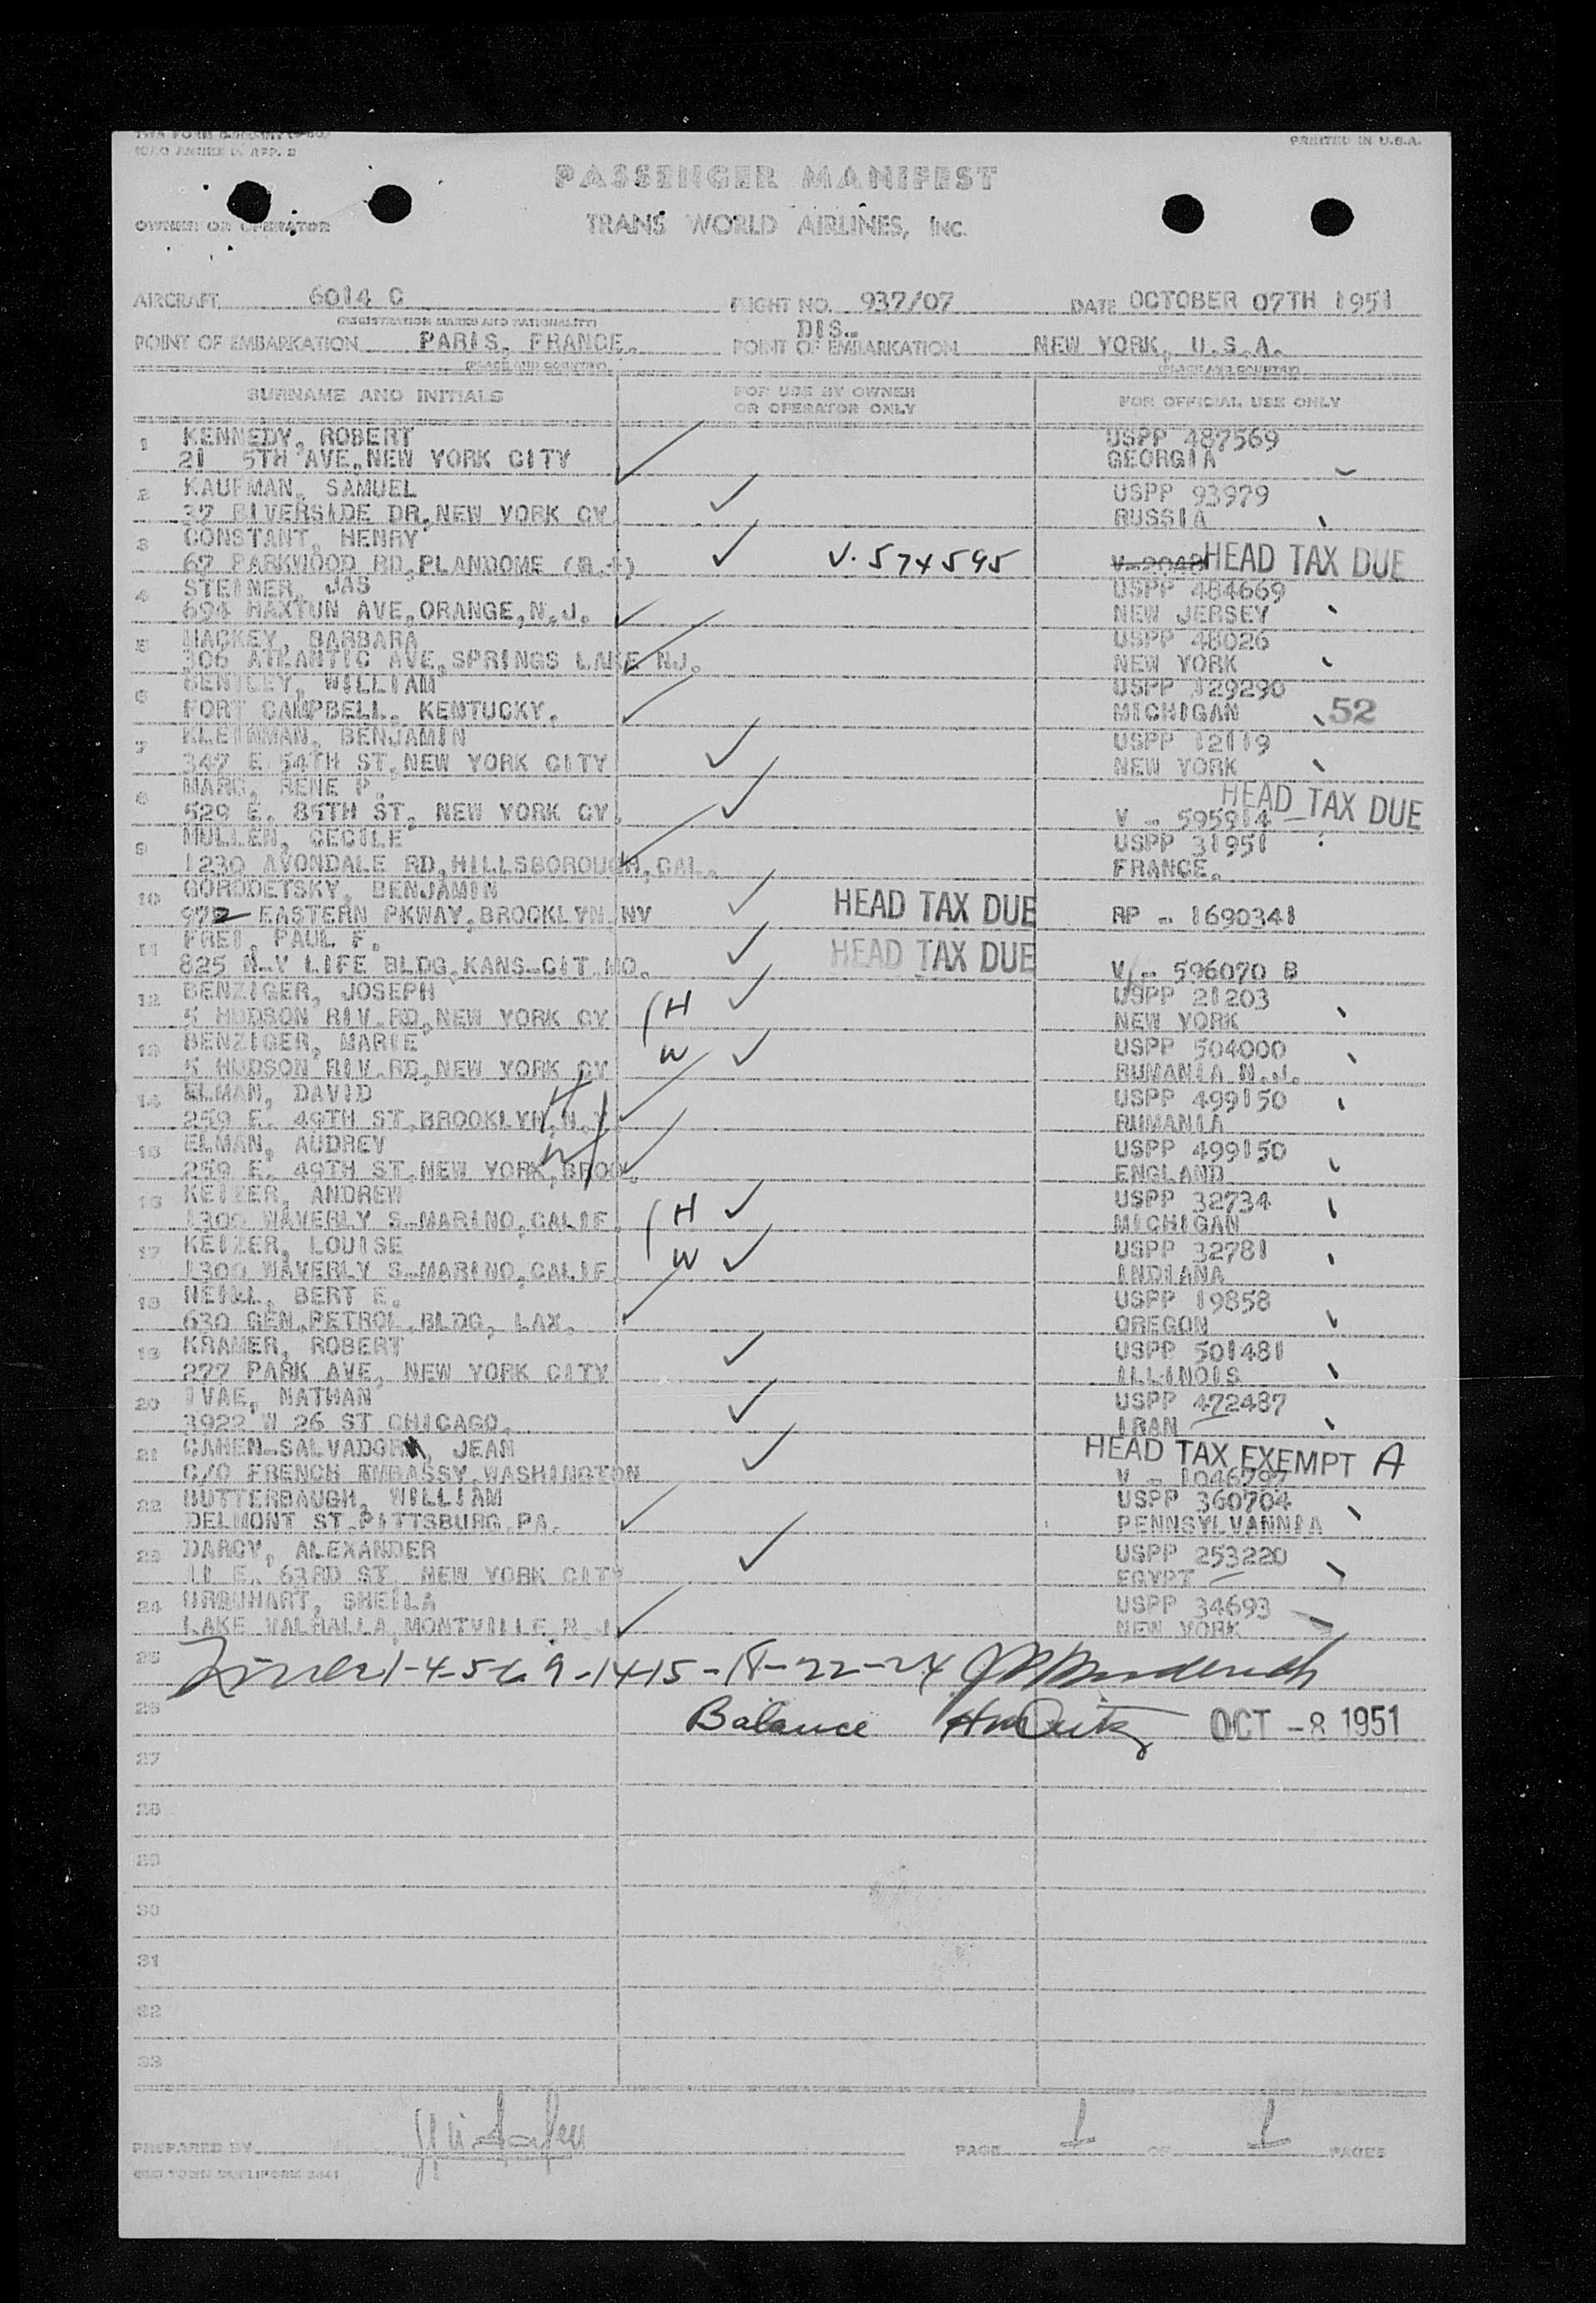 PRINTED IN U.S.A.
PASSENGER MANIFEST
OWNER OR OPERATOR
TRANS WORLD AIRLINES, INC.
AIRCRAFT 6014 C FLIGHT NO. 937/07 DATE OCTOBER 07TH 1951
(REGISTRATION MARKS AND NATIONALITY)
DIS.
POINT OF EMBARKATION PARIS, FRANCE. POINT OF EMBARKATION NEW YORK, U.S.A.
(PLACE AND COUNTRY) (PLACE AND COUNTRY)
SURNAME AND INITIALS FOR USE BY OWNER OR OPERATOR ONLY FOR OFFICIAL USE ONLY
1 KENNEDY, ROBERT USPP 487569
21 5TH AVE,NEW YORK CITY GEORGIA
2 KAUFMAN, SAMUEL USPP 93979
37 RIVERSIDE DR,NEW YORK CY. RUSSIA
3 CONSTANT, HENRY
67 PARKWOOD RD,PLANDOME V. 574595 V-2048 HEAD TAX DUE
4 STEINER, JAS USPP 484669
694 HAXTUN AVE,ORANGE,N.J. NEW JERSEY
5 MACKEY, BARBARA USPP 48026
306 ATLANTIC AVE,SPRINGS LAKE NJ. NEW YORK
6 BENTLEY, WILLIAM USPP 129290
FORT CAMPBELL, KENTUCKY. MICHIGAN 52
7 KLEINMAN, BENJAMIN USPP 12119
347 E 54TH ST,NEW YORK CITY NEW YORK
8 MARC, RENE P. HEAD TAX DUE
529 E. 85TH ST, NEW YORK CY. V - 595914
9 MULLEN, CECILE USPP 31951
1230 AVONDALE RD,HILLSBOROUGH,CAL. FRANCE.
10 GORODETSKY, BENJAMIN HEAD TAX DUE
972 EASTERN PKWAY,BROOKLYN,NY RP - 1690341
11 FREI, PAUL F. HEAD TAX DUE
825 N-Y LIFE BLDG,KANS-CIT,MO. V - 596070 B
12 BENZIGER, JOSEPH H USPP 21203
5 HUDSON RIV.RD,NEW YORK CY NEW YORK
13 BENZIGER, MARIE W USPP 504000
5 HUDSON RIV.RD,NEW YORK CY RUMANIA N.J.
14 ELMAN, DAVID H USPP 499150
259 E. 49TH ST,BROOKLYN,N.Y. RUMANIA
15 ELMAN, AUDREY W USPP 499150
259 E. 49TH ST,NEW YORK,BROO. ENGLAND
16 KEIZER, ANDREW H USPP 32734
1300 WAVERLY S-MARINO,CALIF. MICHIGAN
17 KEIZER, LOUISE W USPP 32781
1300 WAVERLY S-MARINO,CALIF. INDIANA
18 NEILL, BERT E. USPP 19858
630 GEN.PETROL.BLDG, LAX. OREGON
19 KRAMER, ROBERT USPP 501481
277 PARK AVE, NEW YORK CITY ILLINOIS
20 IVAE, NATHAN USPP 472487
3922 W 26 ST CHICAGO. IRAN
21 CAHEN-SALVADOR, JEAN HEAD TAX EXEMPT A
C/O FRENCH EMBASSY,WASHINGTON V - 1046797
22 BUTTERBAUGH, WILLIAM USPP 360704
DELMONT ST.PITTSBURG,PA. PENNSYLVANNIA
23 DARCY, ALEXANDER USPP 253220
11 E. 63RD ST. NEW YORK CITY EGYPT
24 URQUHART, SHEILA USPP 34693
LAKE VALHALLA,MONTVILLE,N.J. NEW YORK
25 1-4-5-6 9-14-15-18-22-24
26 Balance OCT -8 1951
27
28
29
30
31
32
33
PREPARED BY PAGE 1 OF 1 PAGES